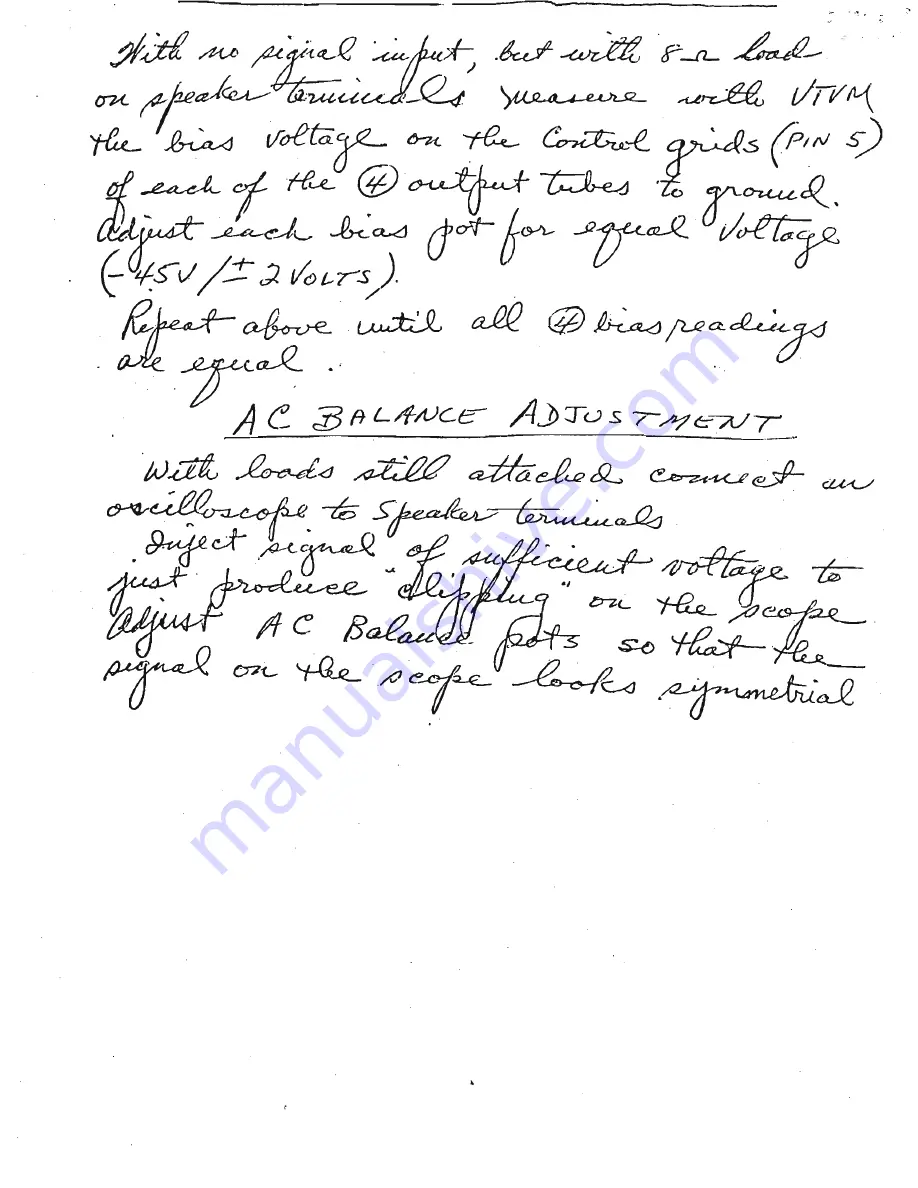 With no signal input, but with 8-Ω load
on speaker terminals measure with VTVM
the bias voltage on the Control grids (PIN 5)
of each of the ④ output tubes to ground.
Adjust each bias pot for equal Voltage
(-45V / ± 2 VOLTS).
Repeat above until all ④ bias readings
are equal.
AC BALANCE ADJUSTMENT
With loads still attached connect an
oscilloscope to Speaker terminals
Inject signal of sufficient voltage to
just produce "clipping" on the scope
Adjust AC Balance pots so that the
signal on the scope looks symmetrial
manualshive.com